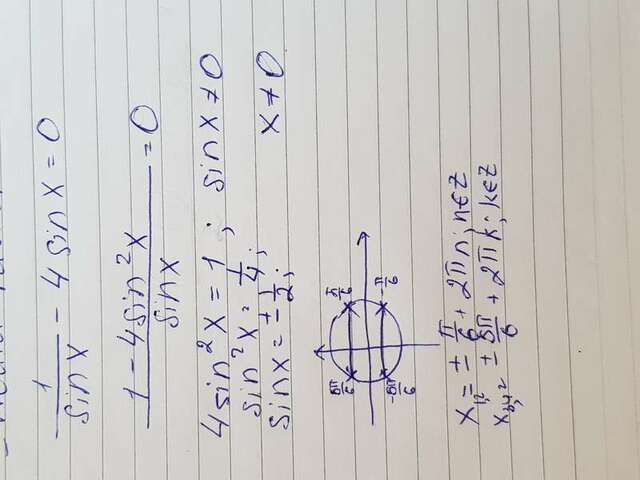 1/sin x − 4 sin x = 0
(1 − 4 sin²x)/sin x = 0
4 sin²x = 1 ; sin x ≠ 0
sin²x = 1/4 ;
sin x = ± 1/2 ; x ≠ 0
5π/6 π/6
−5π/6 −π/6
x₁,₂ = ± π/6 + 2πn ; n ∈ Z
x₃,₄ = ± 5π/6 + 2πk ; k ∈ Z